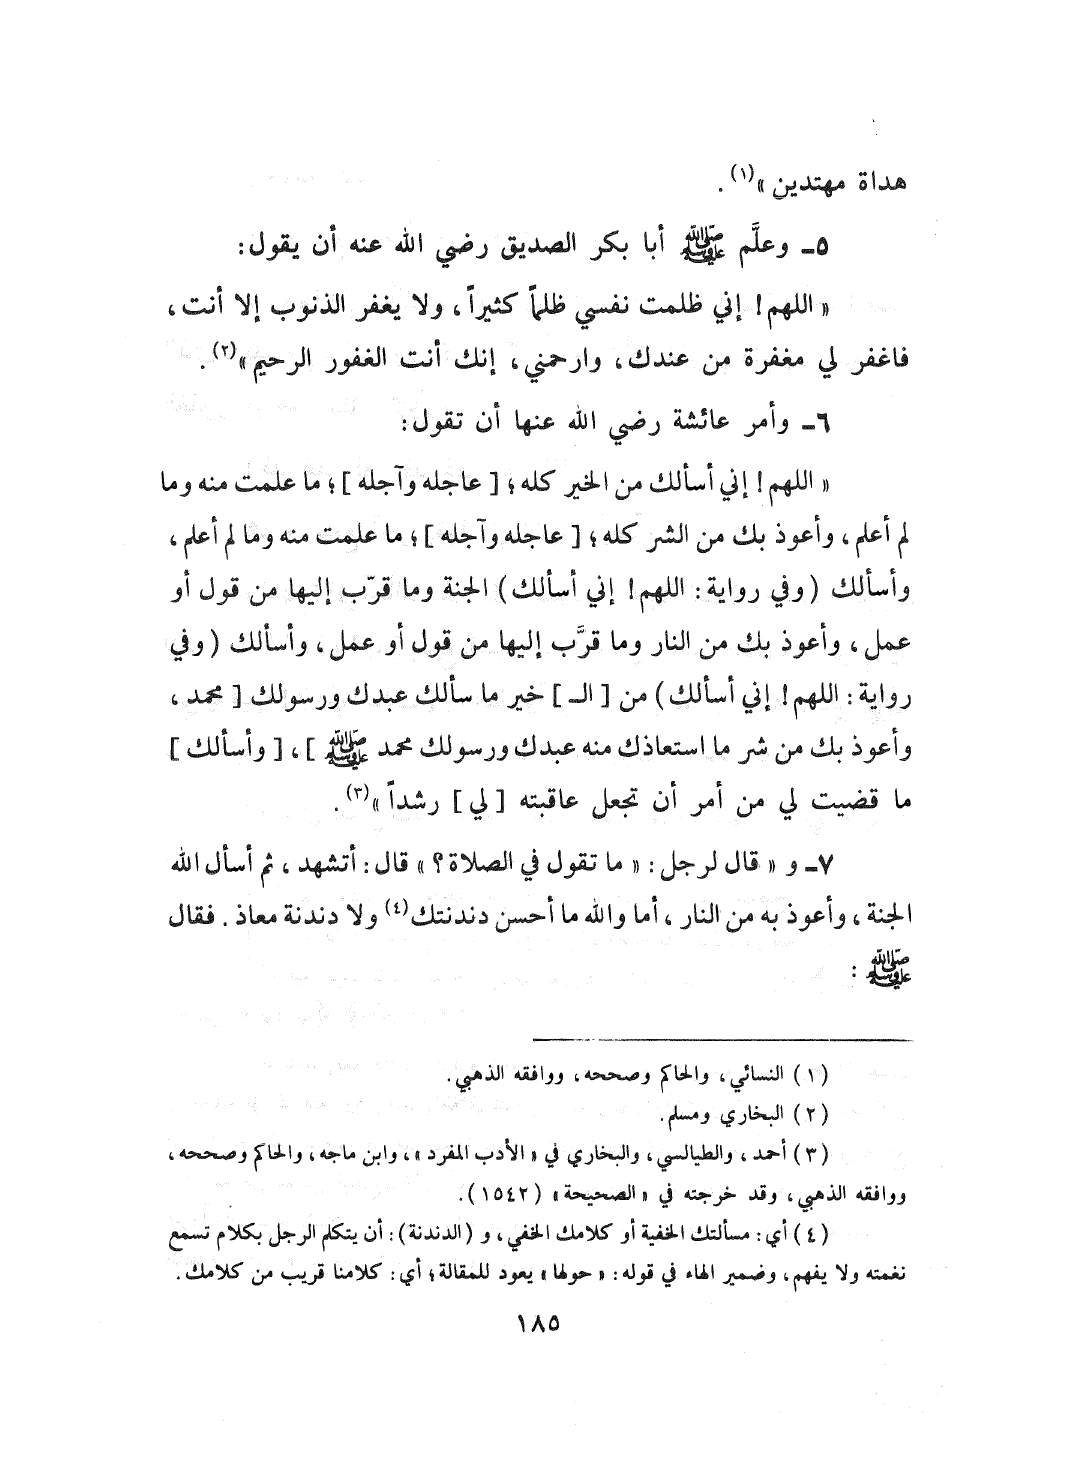 هداة مهتدين »(١) .
٥ـ وعلَّم ﷺ أبا بكر الصديق رضي الله عنه أن يقول:
« اللهم! إني ظلمت نفسي ظلماً كثيراً، ولا يغفر الذنوب إلا أنت،
فاغفر لي مغفرة من عندك، وارحمني، إنك أنت الغفور الرحيم»(٢) .
٦ـ وأمر عائشة رضي الله عنها أن تقول:
« اللهم! إني أسألك من الخير كله؛ [ عاجله وآجله ]؛ ما علمت منه وما
لم أعلم، وأعوذ بك من الشر كله؛ [ عاجله وآجله ]؛ ما علمت منه وما لم أعلم،
وأسألك (وفي رواية: اللهم! إني أسألك) الجنة وما قرّب إليها من قول أو
عمل، وأعوذ بك من النار وما قرَّب إليها من قول أو عمل، وأسألك (وفي
رواية: اللهم! إني أسألك) من [ الـ ] خير ما سألك عبدك ورسولك [ محمد،
وأعوذ بك من شر ما استعاذك منه عبدك ورسولك محمد ﷺ ]، [ وأسألك ]
ما قضيت لي من أمر أن تجعل عاقبته [ لي ] رشداً »(٣) .
٧ـ و « قال لرجل: « ما تقول في الصلاة؟ » قال: أتشهد، ثم أسأل الله
الجنة، وأعوذ به من النار، أما والله ما أحسن دندنتك(٤) ولا دندنة معاذ. فقال
ﷺ :
(١) النسائي، والحاكم وصححه، ووافقه الذهبي.
(٢) البخاري ومسلم.
(٣) أحمد، والطيالسي، والبخاري في « الأدب المفرد »، وابن ماجه، والحاكم وصححه،
ووافقه الذهبي، وقد خرجته في « الصحيحة » (١٥٤٢).
(٤) أي: مسألتك الخفية أو كلامك الخفي، و (الدندنة): أن يتكلم الرجل بكلام تسمع
نغمته ولا يفهم، وضمير الهاء في قوله: « حولها » يعود للمقالة؛ أي: كلامنا قريب من كلامك.
١٨٥